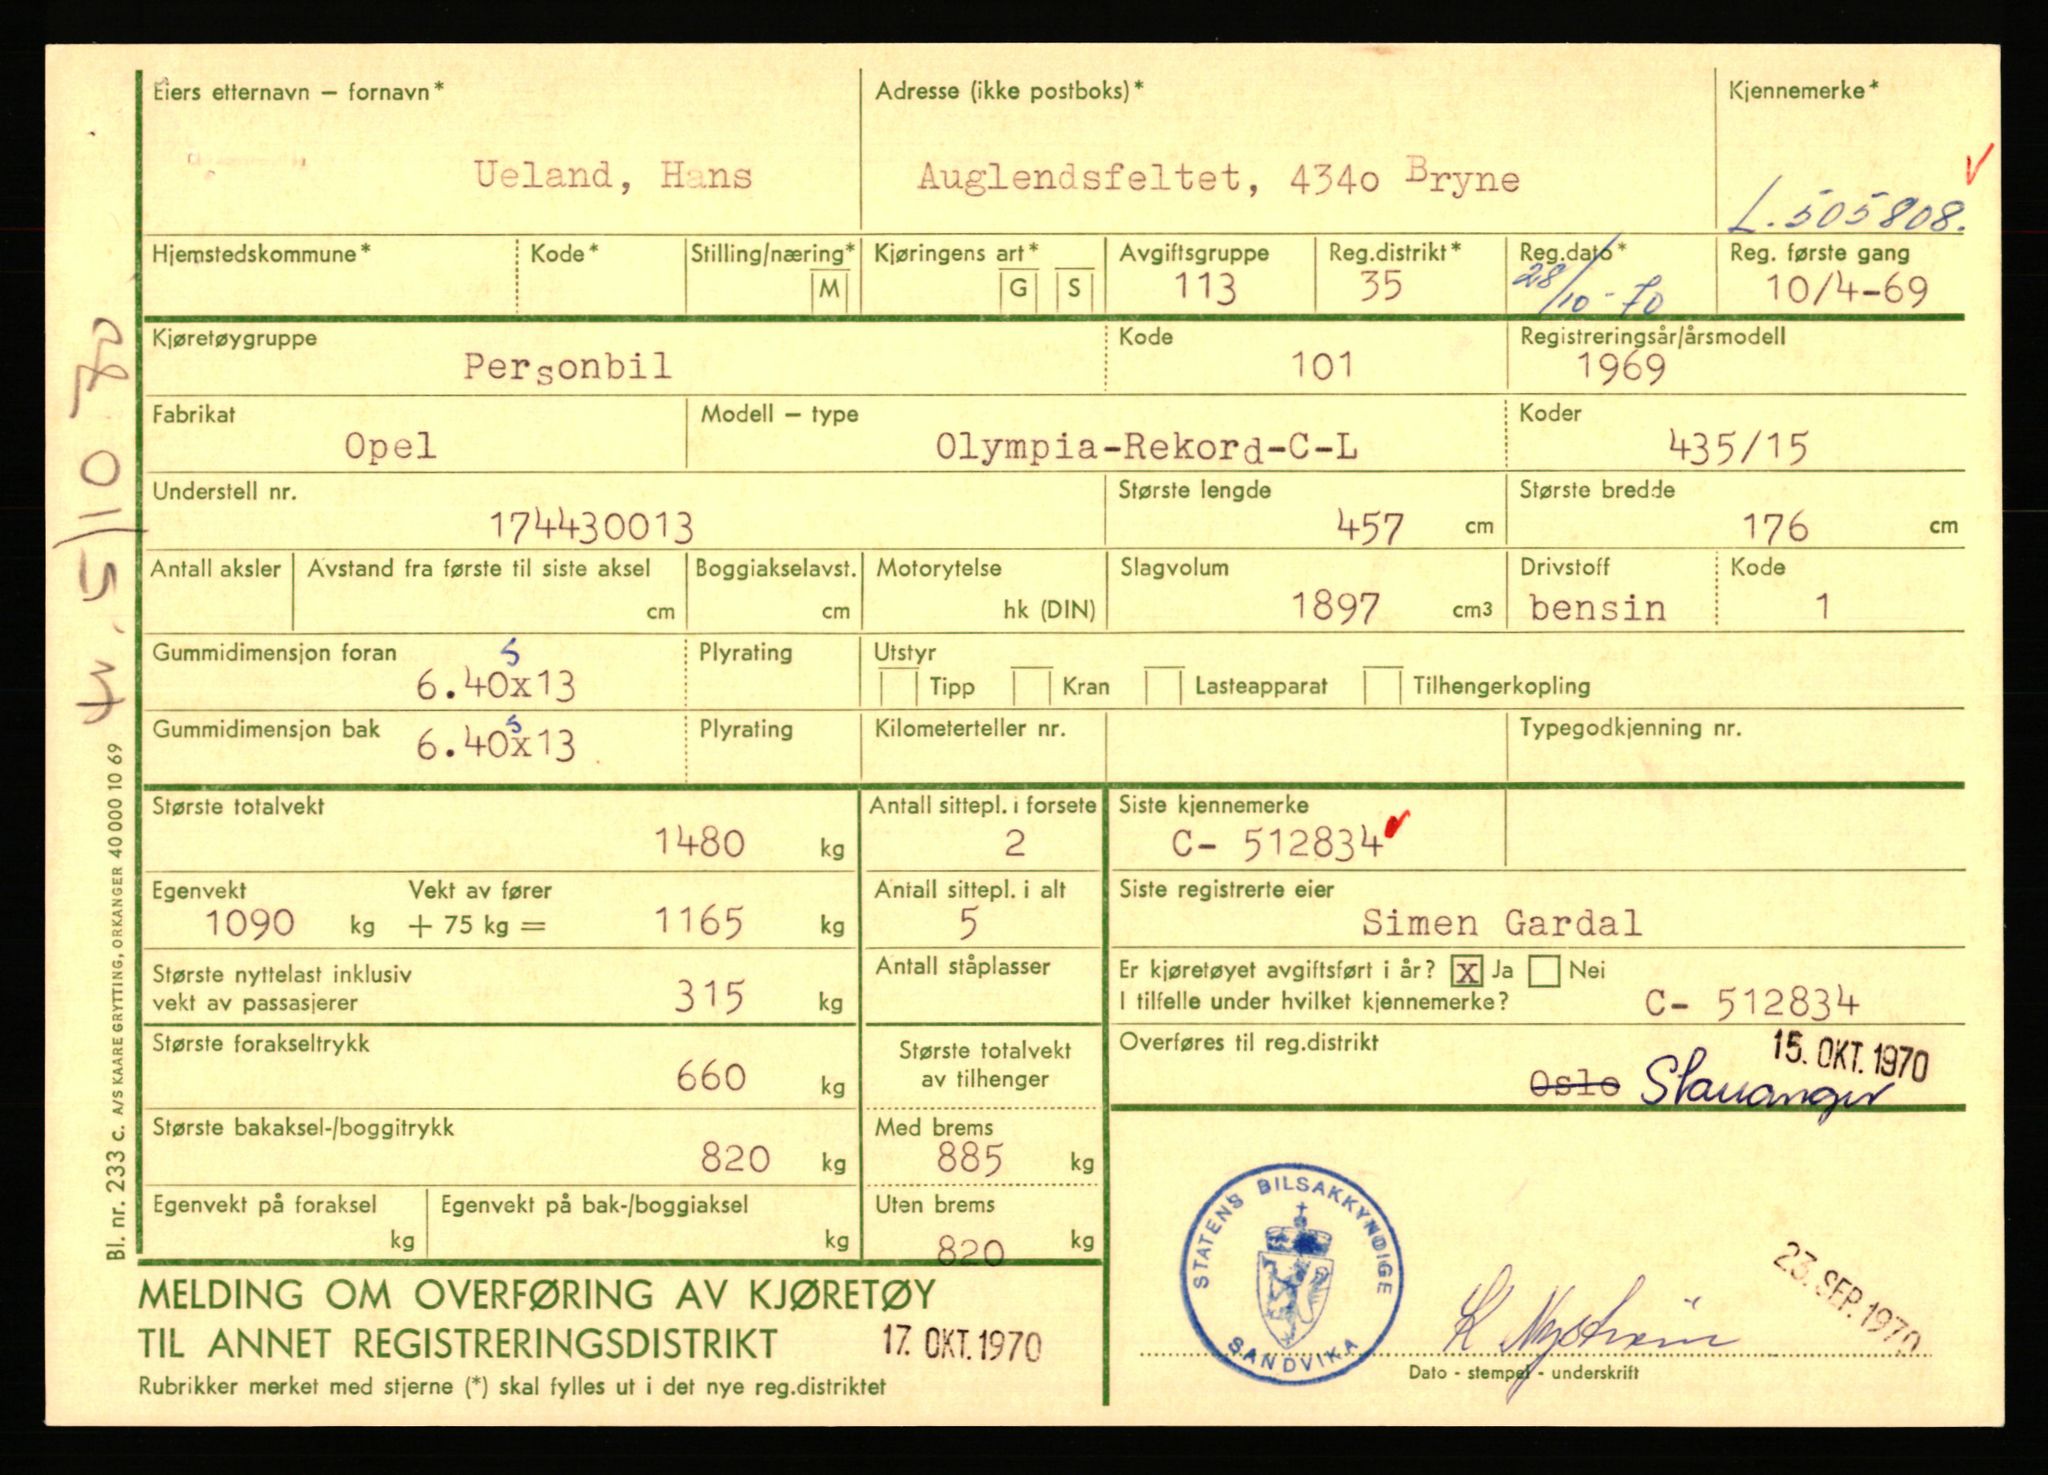 Eiers etternavn – fornavn*
Adresse (ikke postboks)*
Kjennemerke*
Ueland, Hans
Auglendsfeltet, 4340 Bryne
L. 505808.
Hjemstedskommune*
Kode*
Stilling/næring*
M
Kjøringens art*
G S
Avgiftsgruppe
113
Reg.distrikt*
35
Reg.dato*
28/10-70
Reg. første gang
10/4-69
Kjøretøygruppe
Personbil
Kode
101
Registreringsår/årsmodell
1969
Fabrikat
Opel
Modell – type
Olympia-Rekord-C-L
Koder
435/15
Understell nr.
174430013
Største lengde
457 cm
Største bredde
176 cm
Antall aksler
Avstand fra første til siste aksel
cm
Boggiakselavst.
cm
Motorytelse
hk (DIN)
Slagvolum
1897 cm3
Drivstoff
bensin
Kode
1
Gummidimensjon foran
s
6.40x13
Plyrating
Utstyr
Tipp Kran Lasteapparat Tilhengerkopling
Gummidimensjon bak
s
6.40x13
Plyrating
Kilometerteller nr.
Typegodkjenning nr.
Største totalvekt
1480 kg
Antall sittepl. i forsete
2
Siste kjennemerke
C- 512834
Egenvekt
1090 kg
Vekt av fører
+ 75 kg =
1165 kg
Antall sittepl. i alt
5
Siste registrerte eier
Simen Gardal
Største nyttelast inklusiv
vekt av passasjerer
315 kg
Antall ståplasser
Er kjøretøyet avgiftsført i år? X Ja Nei
I tilfelle under hvilket kjennemerke?
C- 512834
Største forakseltrykk
660 kg
Største totalvekt
av tilhenger
Overføres til reg.distrikt
15. OKT. 1970
Oslo Stavanger
Største bakaksel-/boggitrykk
820 kg
Med brems
885 kg
Egenvekt på foraksel
kg
Egenvekt på bak-/boggiaksel
kg
Uten brems
820 kg
STATENS BILSAKKYNDIGE
SANDVIKA
23. SEP. 1970
Dato - stempel - underskrift
MELDING OM OVERFØRING AV KJØRETØY
TIL ANNET REGISTRERINGSDISTRIKT
17. OKT. 1970
Rubrikker merket med stjerne (*) skal fylles ut i det nye reg.distriktet
Bl. nr. 233 c. A/S KAARE GRYTTING, ORKANGER 40 000 10 69
5/10 70